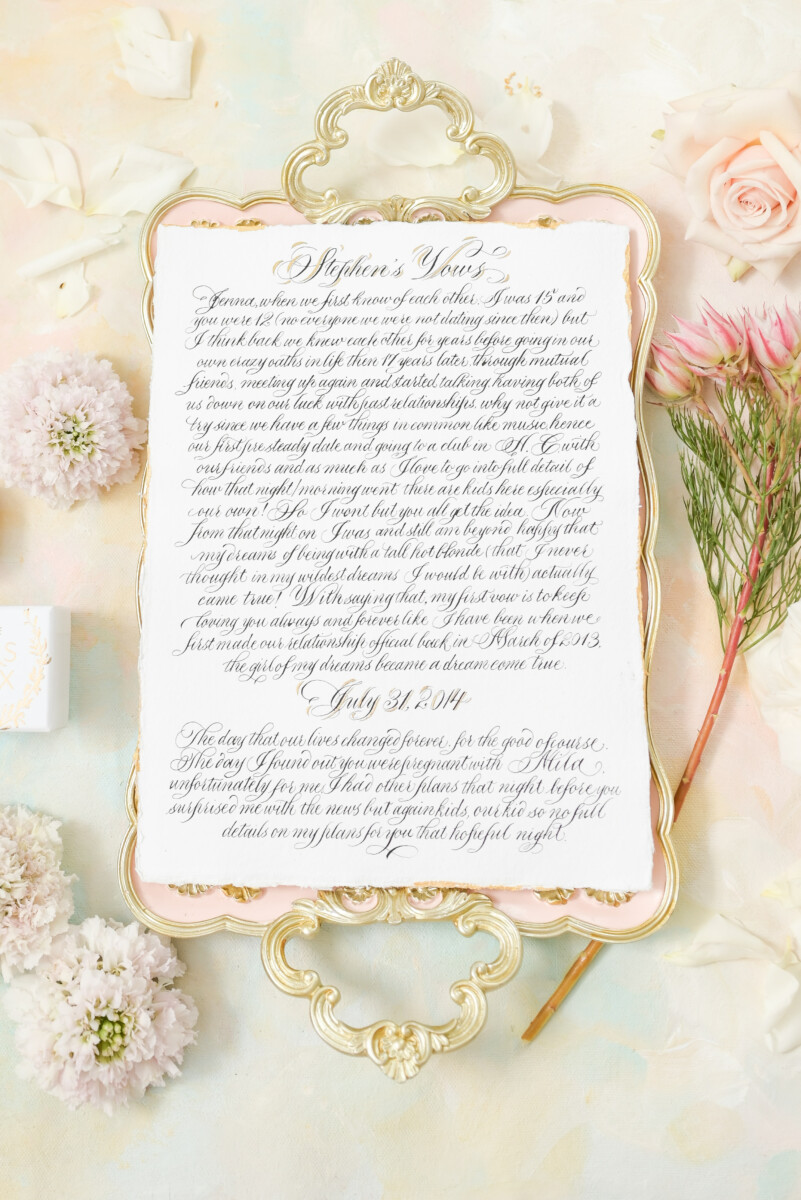 Stephen's Vows
Jenna, when we first know of each other. I was 15 and
you were 12 (no everyone we were not dating since then) but
I think back we knew each other for years before going in our
own crazy oaths in life then 17 years later, through mutual
friends, meeting up again and started talking having both of
us down on our luck with past relationships. why not give it a
try since we have a few things in common like music hence
our first pre steady date and going to a club in A. C with
our friends and as much as I love to go into full detail of
how that night/morning went there are kids here especially
our own! So I wont but you all get the idea. Now
from that night on I was and still am beyond happy that
my dreams of being with a tall hot blonde (that I never
thought in my wildest dreams I would be with) actually
came true! With saying that, my first vow is to keep
loving you always and forever like I have been when we
first made our relationship official back in March of 2013.
the girl of my dreams became a dream come true.
July 31, 2014
The day that our lives changed forever, for the good of course.
The day I found out you were pregnant with Mila,
unfortunately for me I had other plans that night before you
surprised me with the news but again kids, our kid so no full
details on my plans for you that hopeful night.
S
X